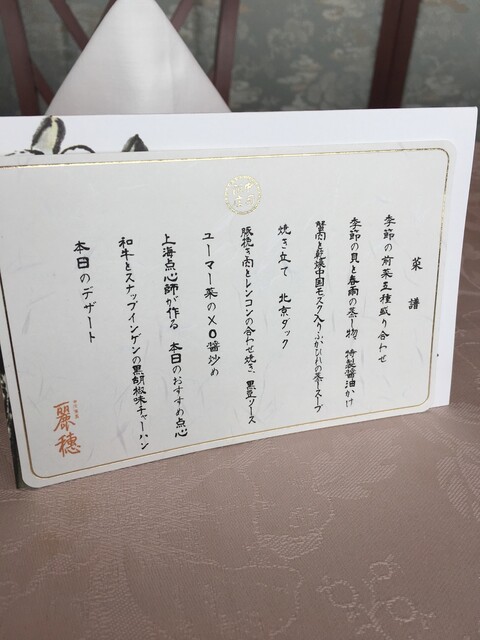 菜譜
季節の前菜五種盛り合わせ
季節の貝と春雨の蒸し物 特製醤油かけ
蟹肉と乾燥中国モスク入りふかひれの蒸しスープ
焼き立て 北京ダック
豚挽き肉とレンコンの合わせ焼き 黒豆ソース
ユーマー菜のXO醤炒め
上海点心師が作る 本日のおすすめ点心
和牛とスナップインゲンの黒胡椒味チャーハン
本日のデザート
麗穂